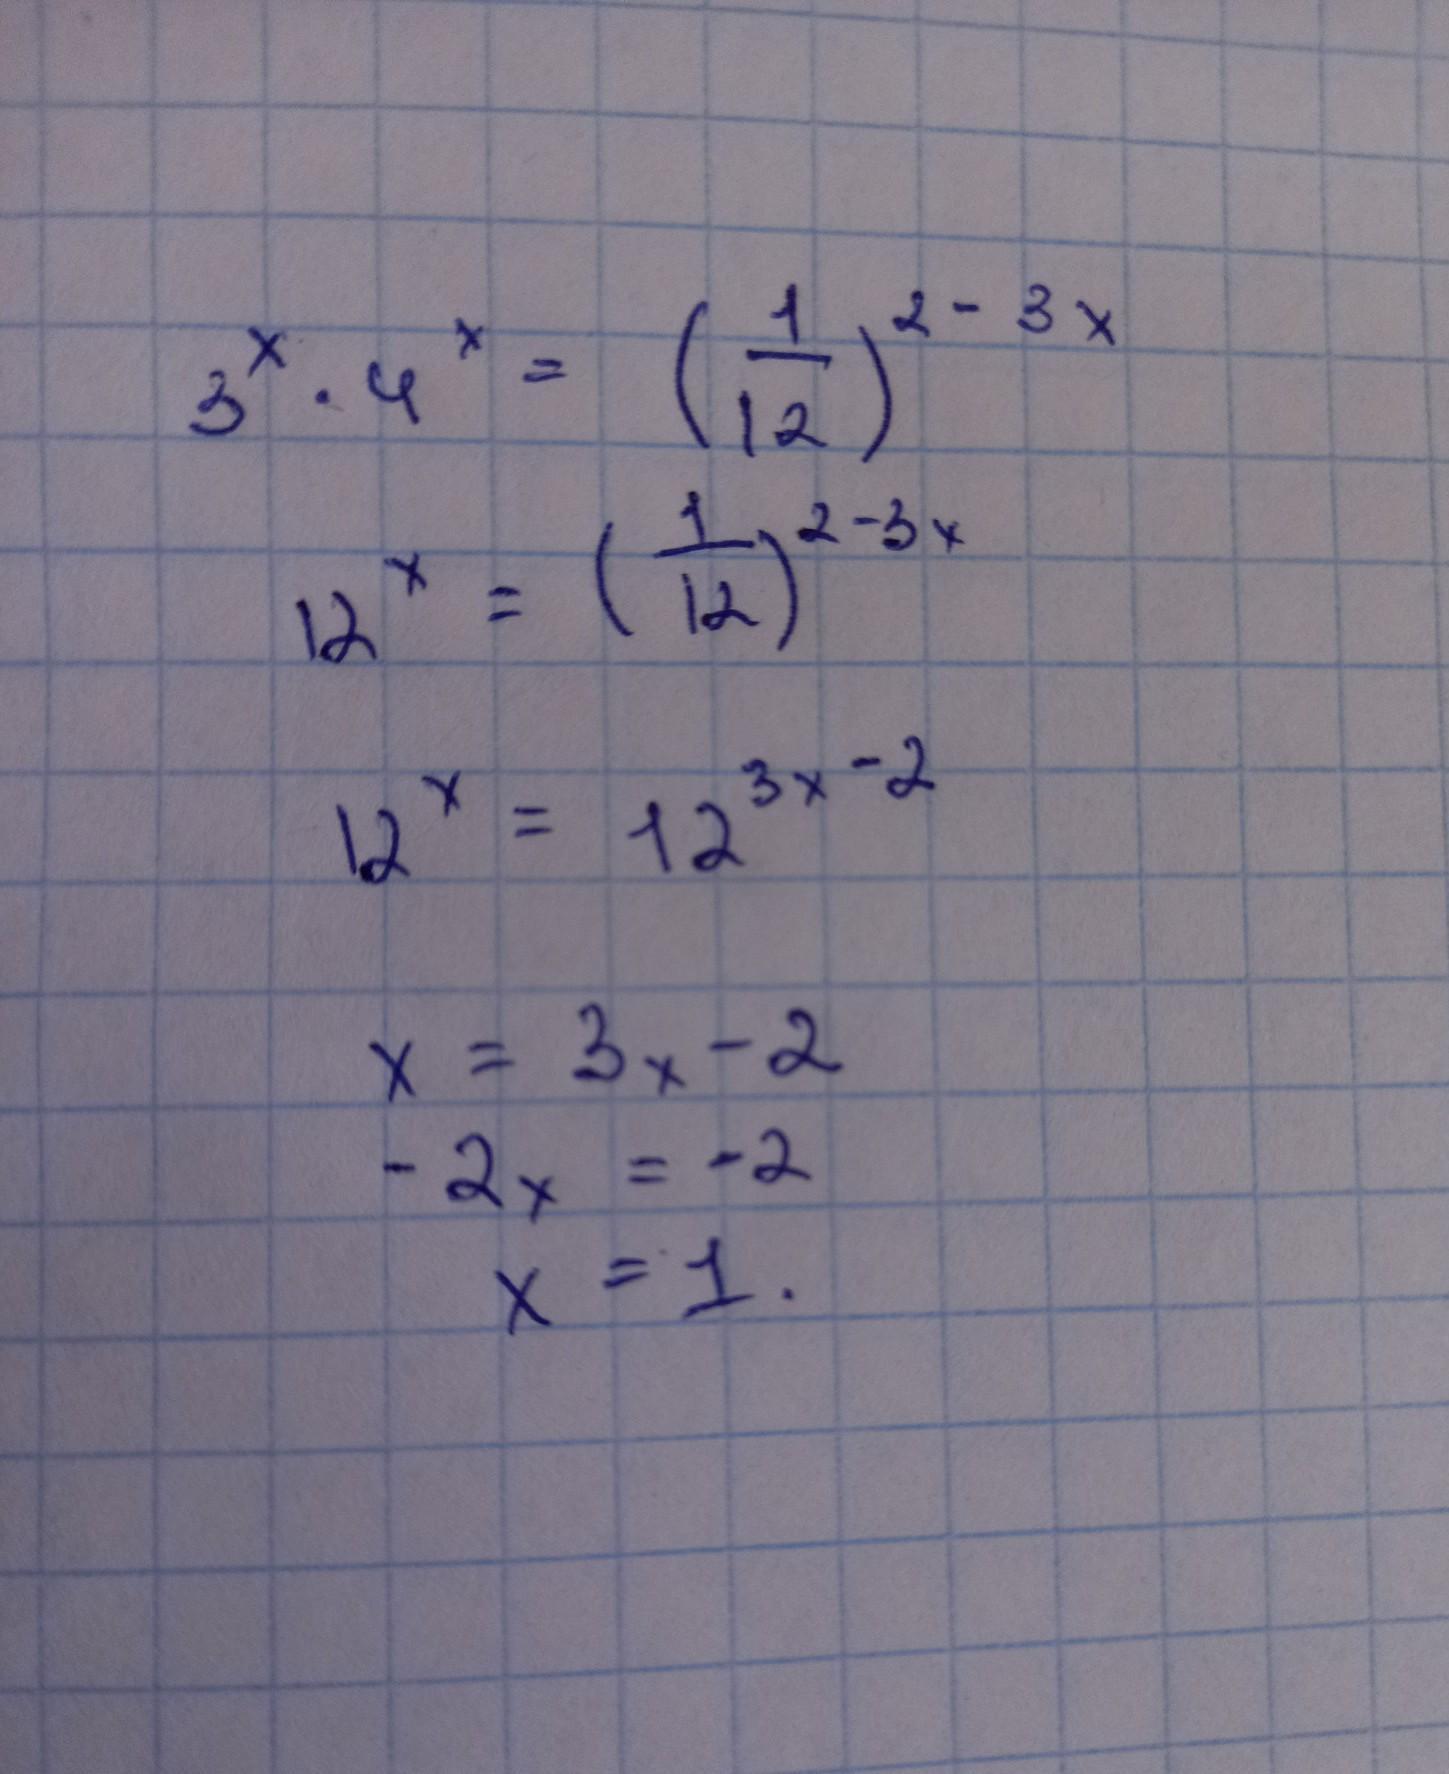 3^x · 4^x = (1/12)^(2 - 3x)
12^x = (1/12)^(2 - 3x)
12^x = 12^(3x - 2)
x = 3x - 2
- 2x = - 2
x = 1.